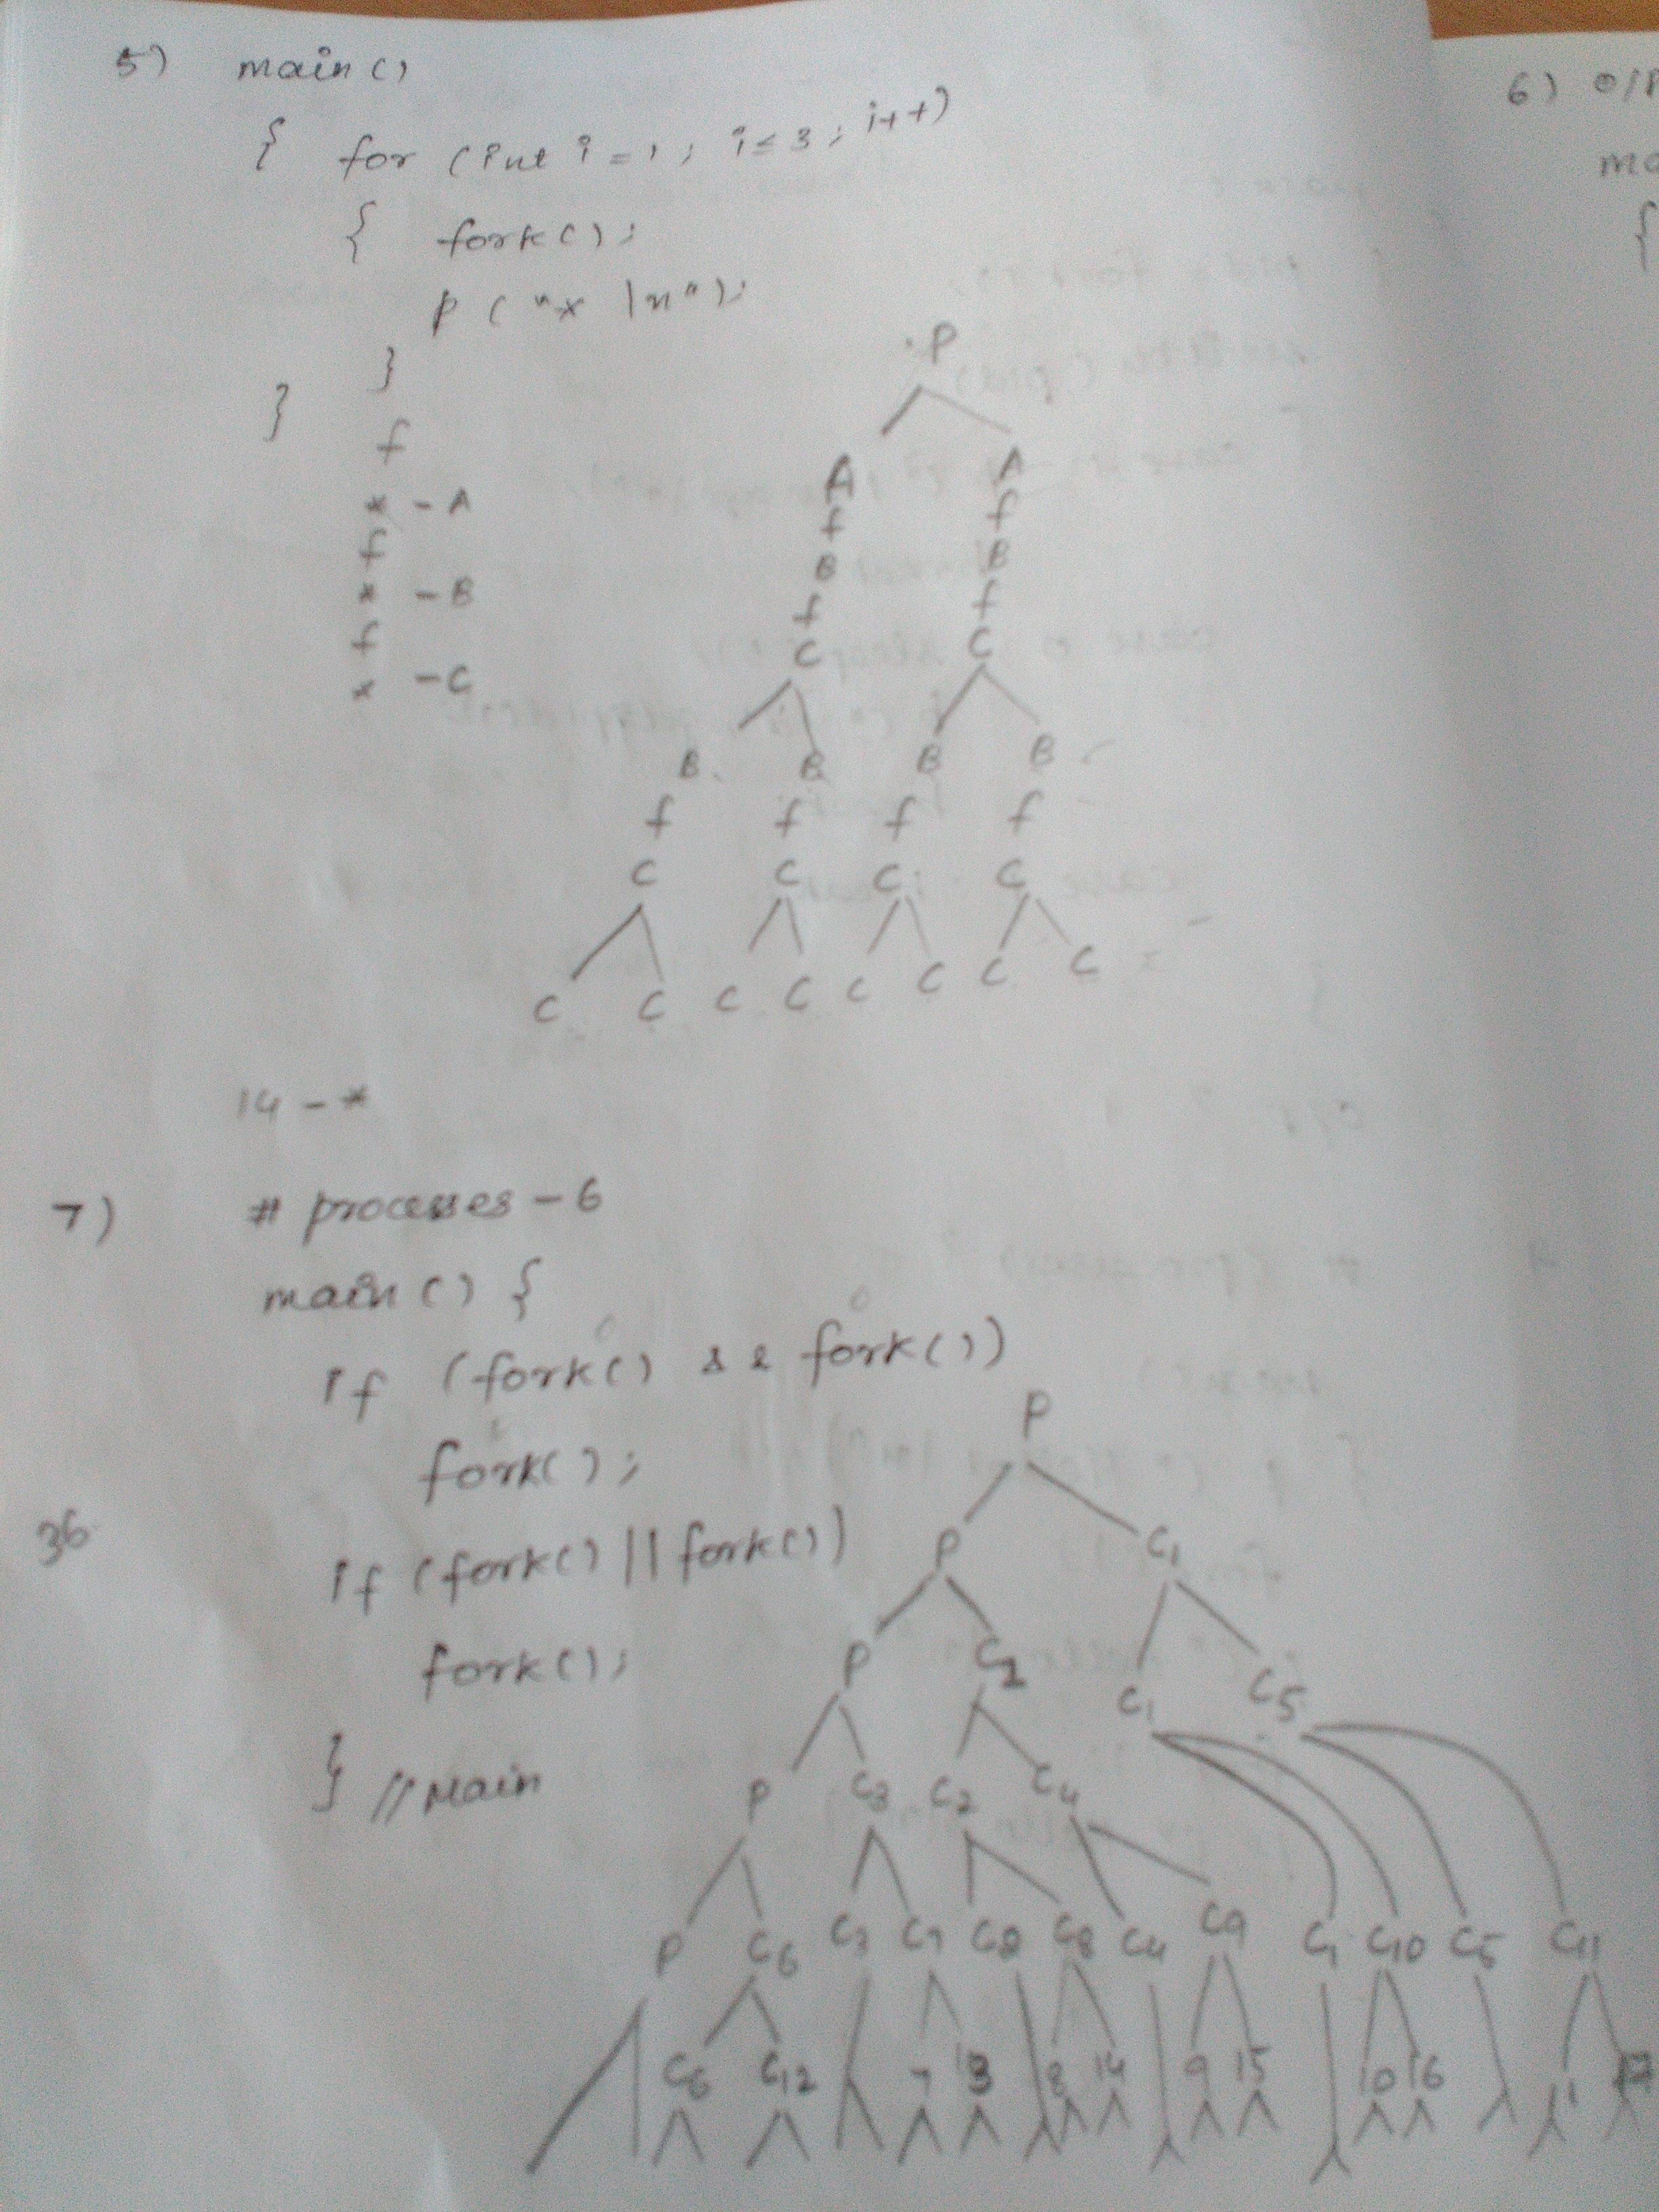 5) main ()
{ for (int i = 1; i ≤ 3; i++)
{ fork();
p ("* \n");
}
}
f
* - A
f
* - B
f
* - C
P
A A
f f
B B
f f
C C
B B B B
f f f f
C C C C
C C C C C C C C
14 - *
6) O/P
7) # processes - 6
main () {
if (fork() && fork())
fork();
36
if (fork() || fork())
fork();
} // Main
P
P C1
P C2 C1 C5
P C3 C2 C4
P C6 C3 C7 C2 C8 C4 C9 C1 C10 C5 C11
C6 C12 7 13 8 14 9 15 10 16 11 17